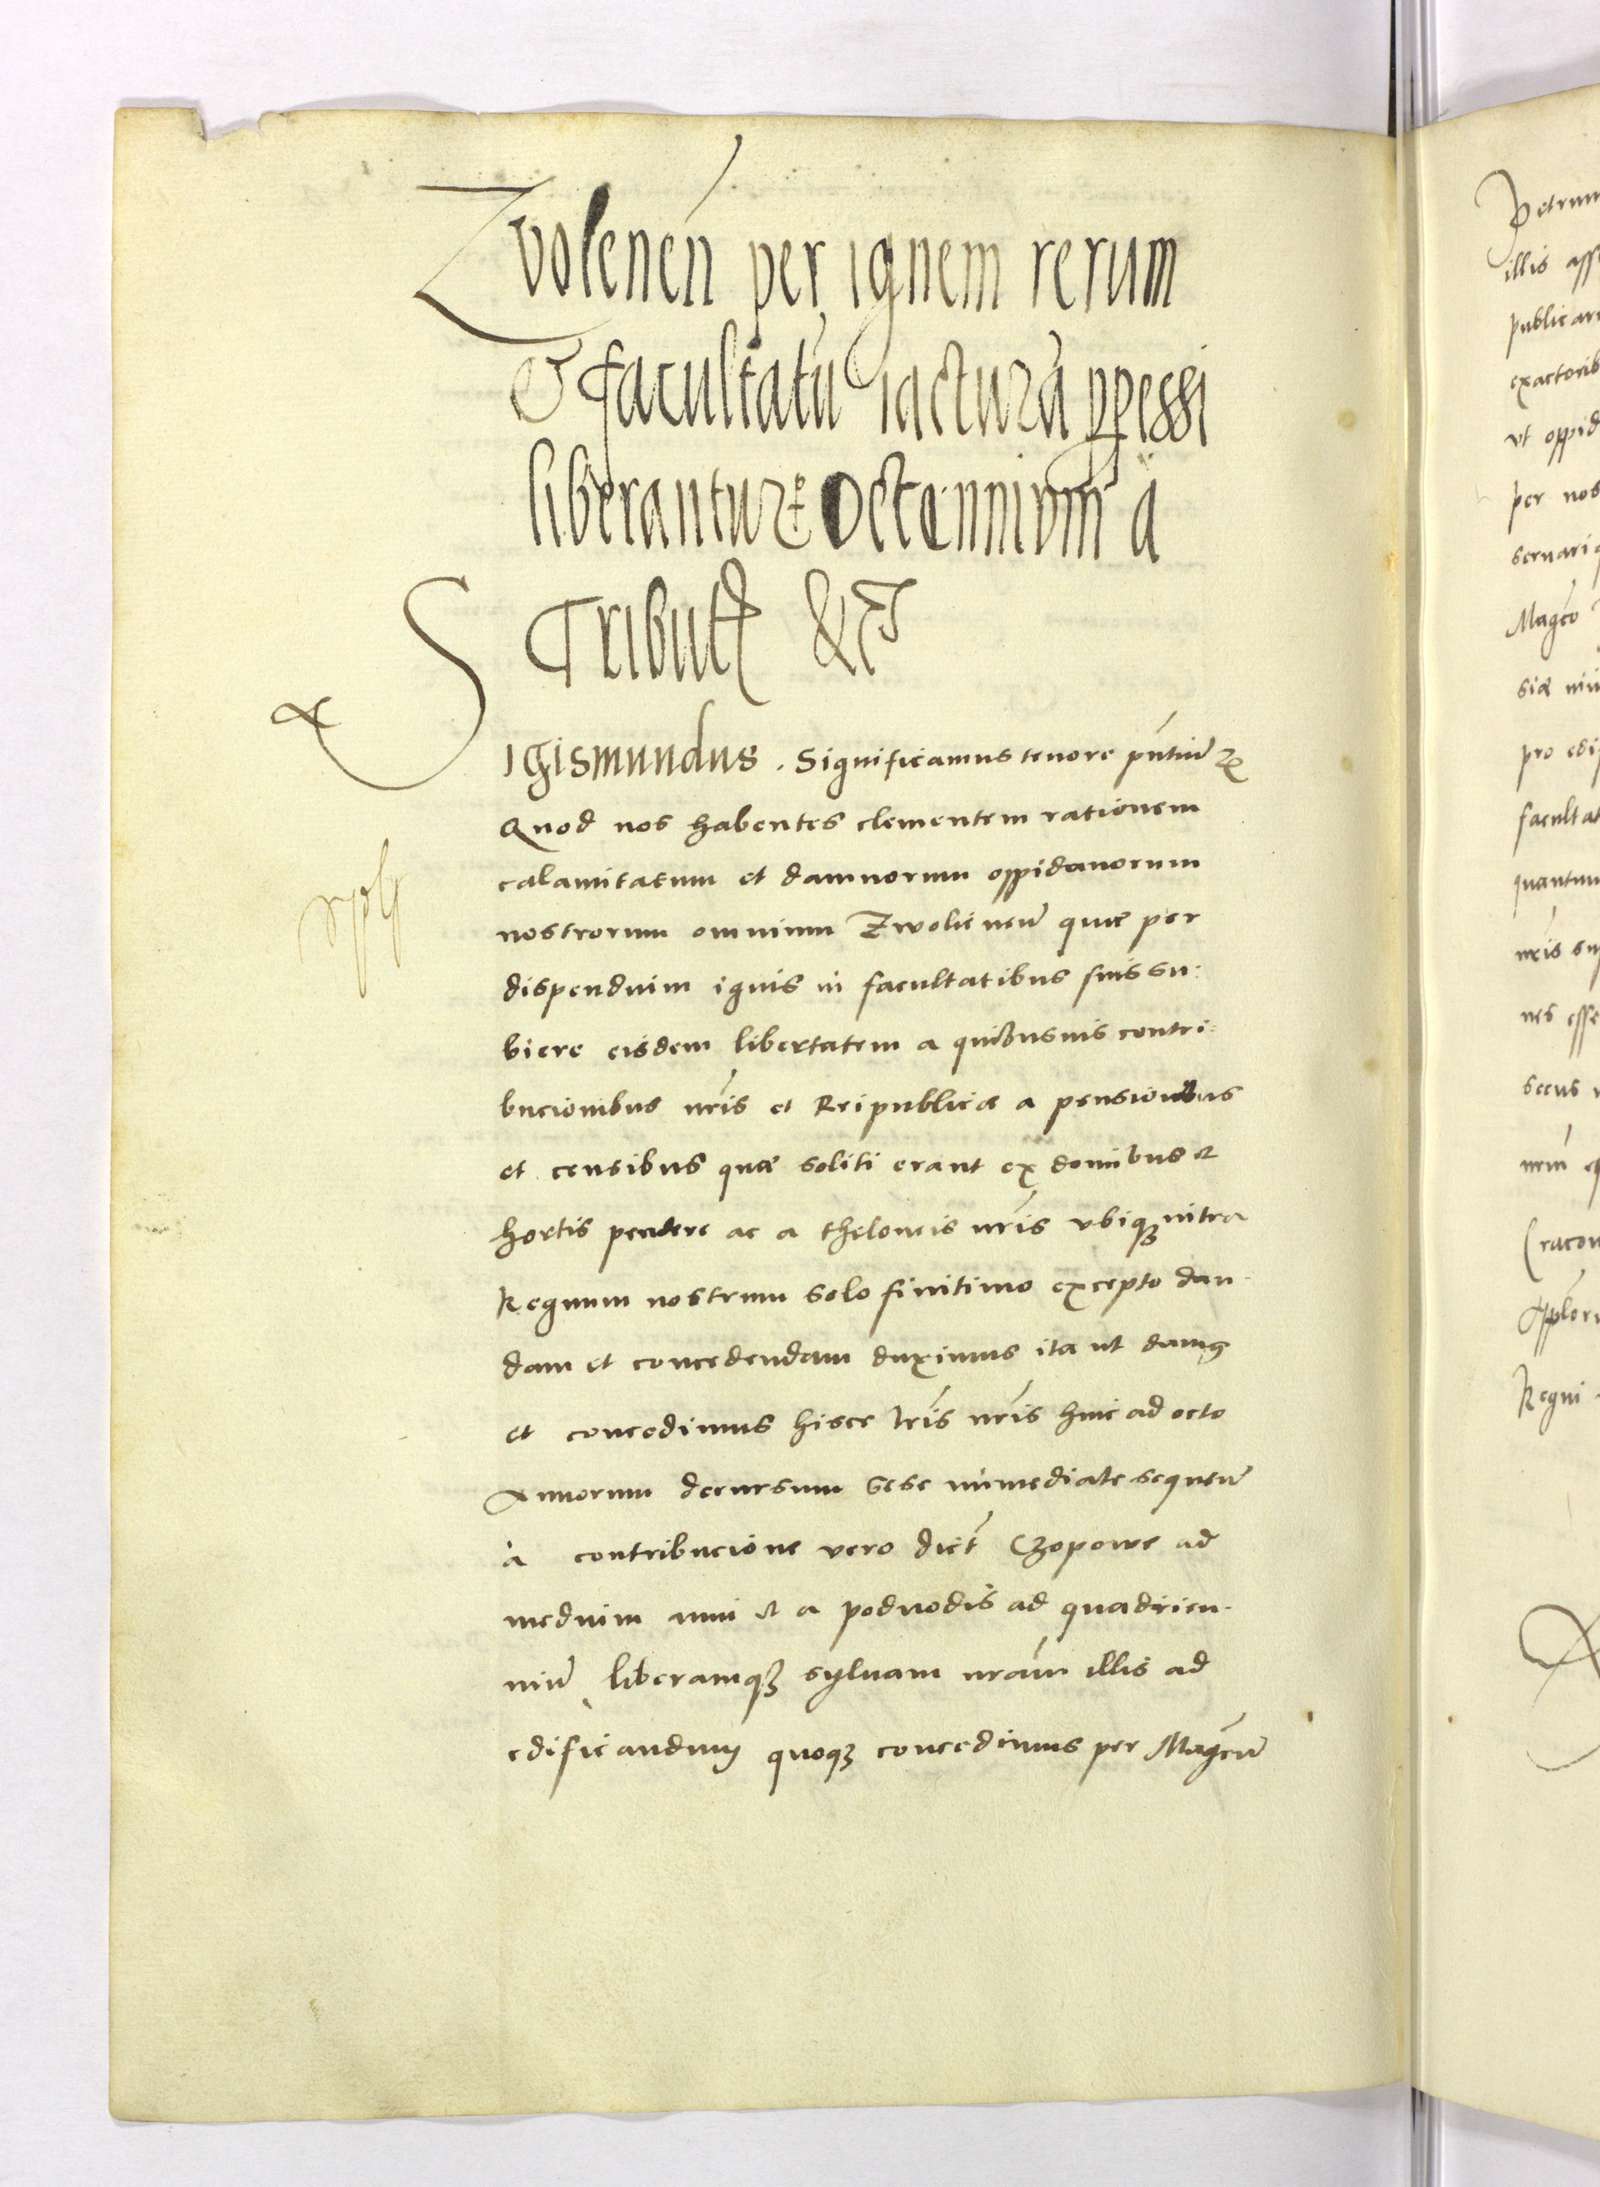 Zvolenen̄ per ignem rerum
& facultatū iacturā ꝑpessi
liberantur ꝑ octennivm a
Tributꝭ &c
Sigismundus. Significamus tenore pn̄tiū ꝛc
Quod nos habentes clementem rationem
calamitatum et damnorum oppidanorum
nostrorum omnium Zwolinen̄ quae per
dispendium ignis in facultatibus suis su:
biere eisdem libertatem a quibusvis contri:
bucionibus nr̄is et Reipublicae a pensionibus
et censibus quae soliti erant ex domibus et
hortis pendere ac a theloneis nr̄is vbiqꝫ intra
Regnum nostrum solo finitimo excepto dan-
dam et concedendam duximus ita ut damꝰ
et concedimus hisce lr̄is nr̄is hinc ad octo
Annorum decursum sese immediate sequen̄
à contribucione vero dict̄ Czopowe ad
medium anni et a podvodis ad quadrien-
niū, liberamqꝫ sylvam nr̄am illis ad
edificandum quoqꝫ concedimus per Magc̄um
Petrum
illis
exactorib
vt oppid
per nos
Magc̄o
facultat
quantum
secus
Regni